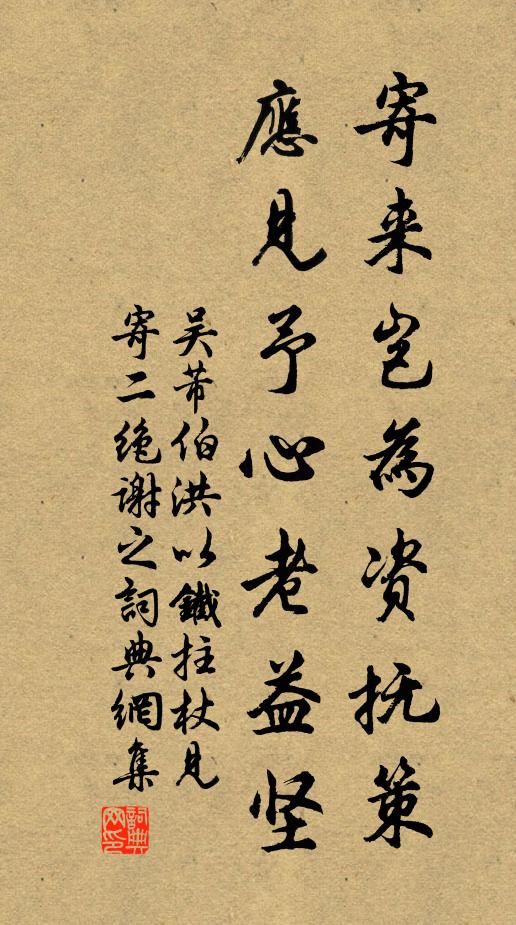 寄来岂為资抚策
應见予心老益坚
吴芾伯洪以鐵拄杖见
寄二绝谢之詞典網集
詞典网印